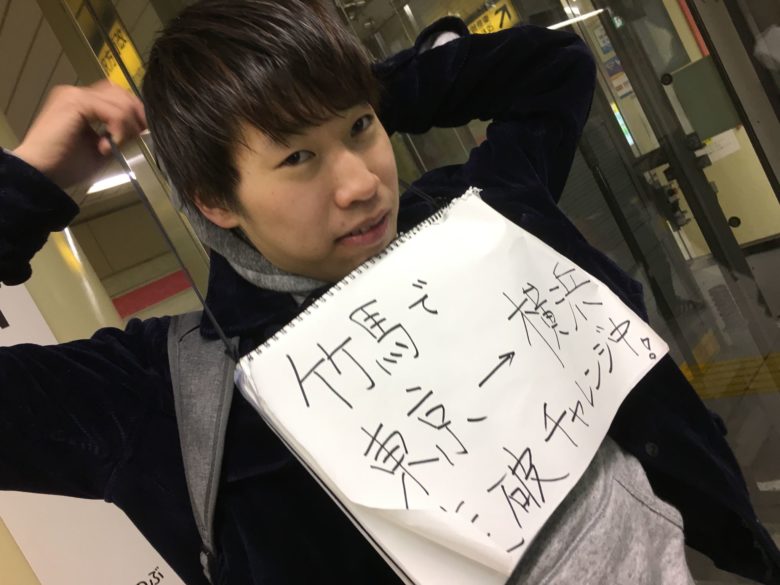 竹馬で
東京→横浜
破チャレンジ中!
のぶ